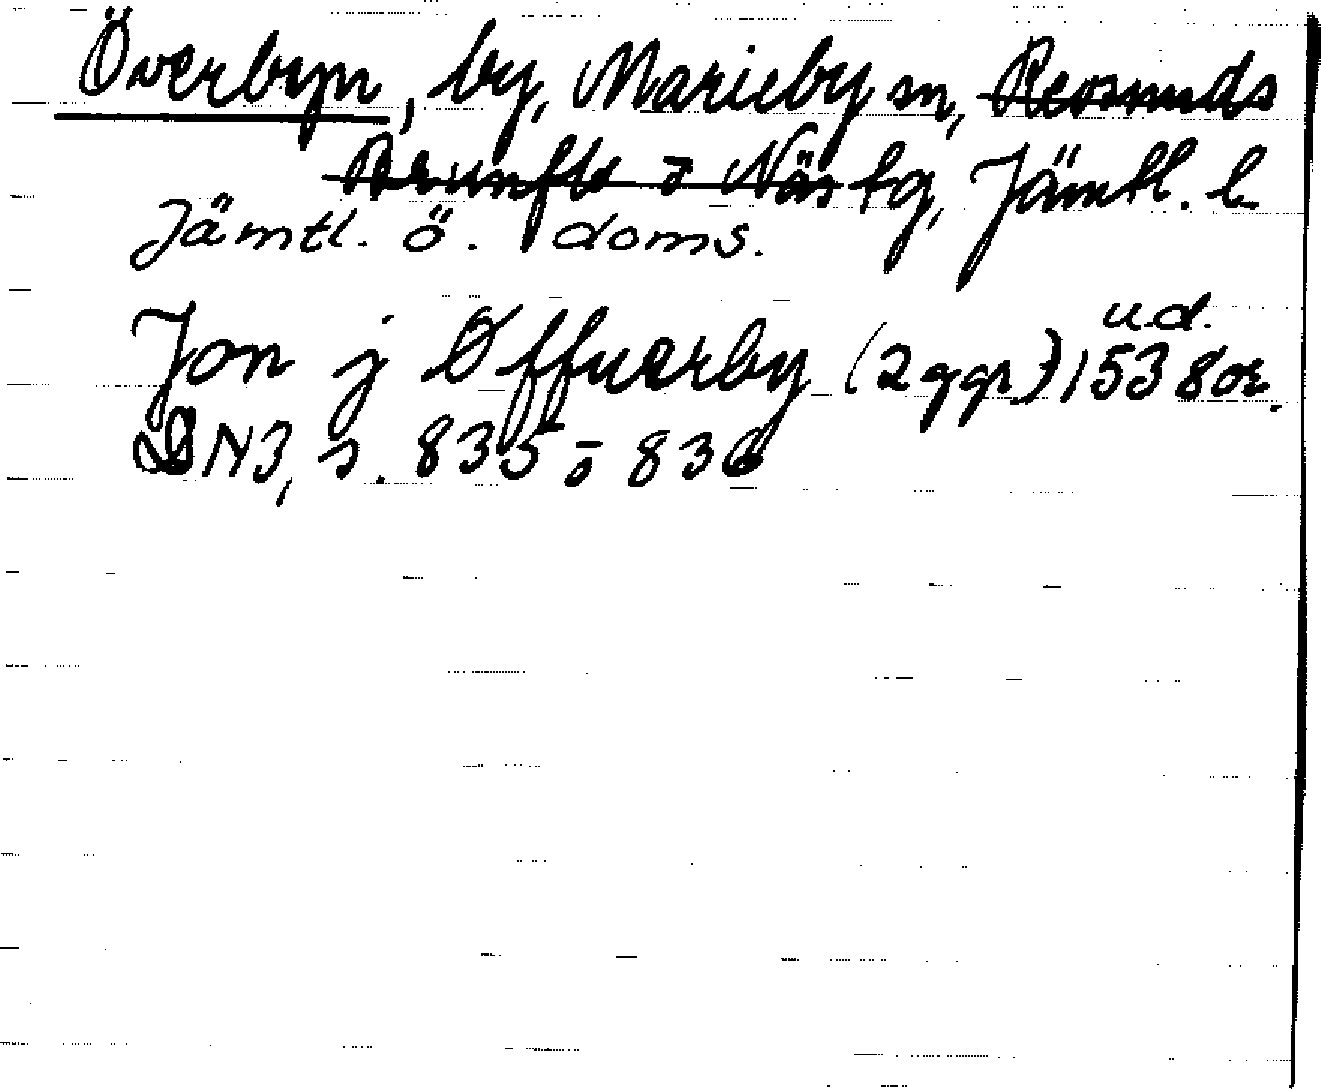 Överbyn, by, Marieby sn, Revsunds
Brunflo o Näs tg, Jämtl. l
Jämtl. ö. doms.
Jon j Øffuerby (2 ggr) 1538 or. u.d.
DN3, s. 835 o 836